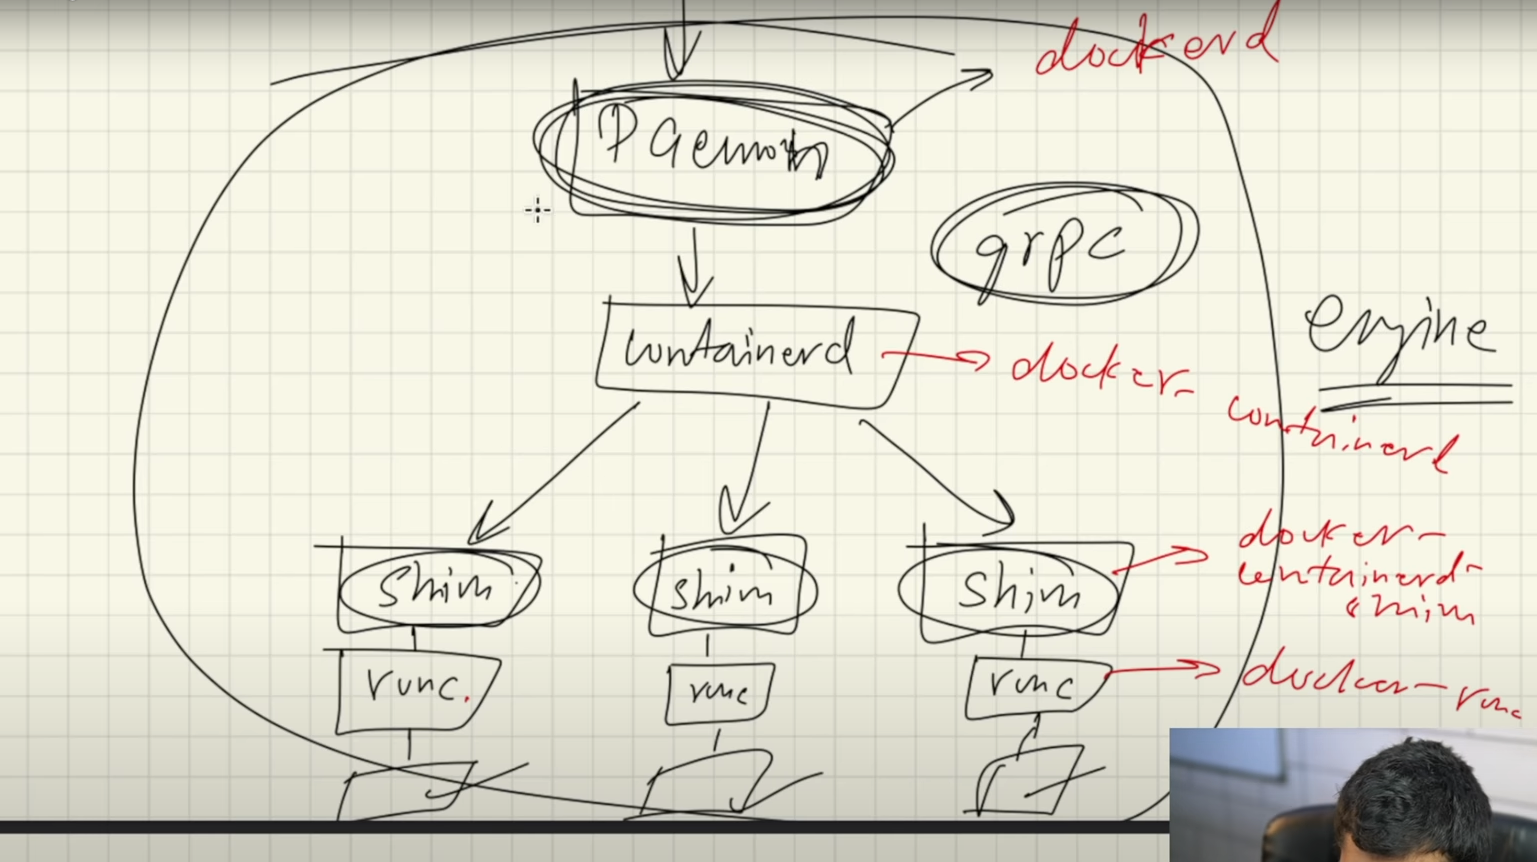 dockerd
Daemon
grpc
engine
containerd
docker-
containerd
shim
shim
shim
docker-
containerd-
shim
runc.
runc
runc
docker-runc